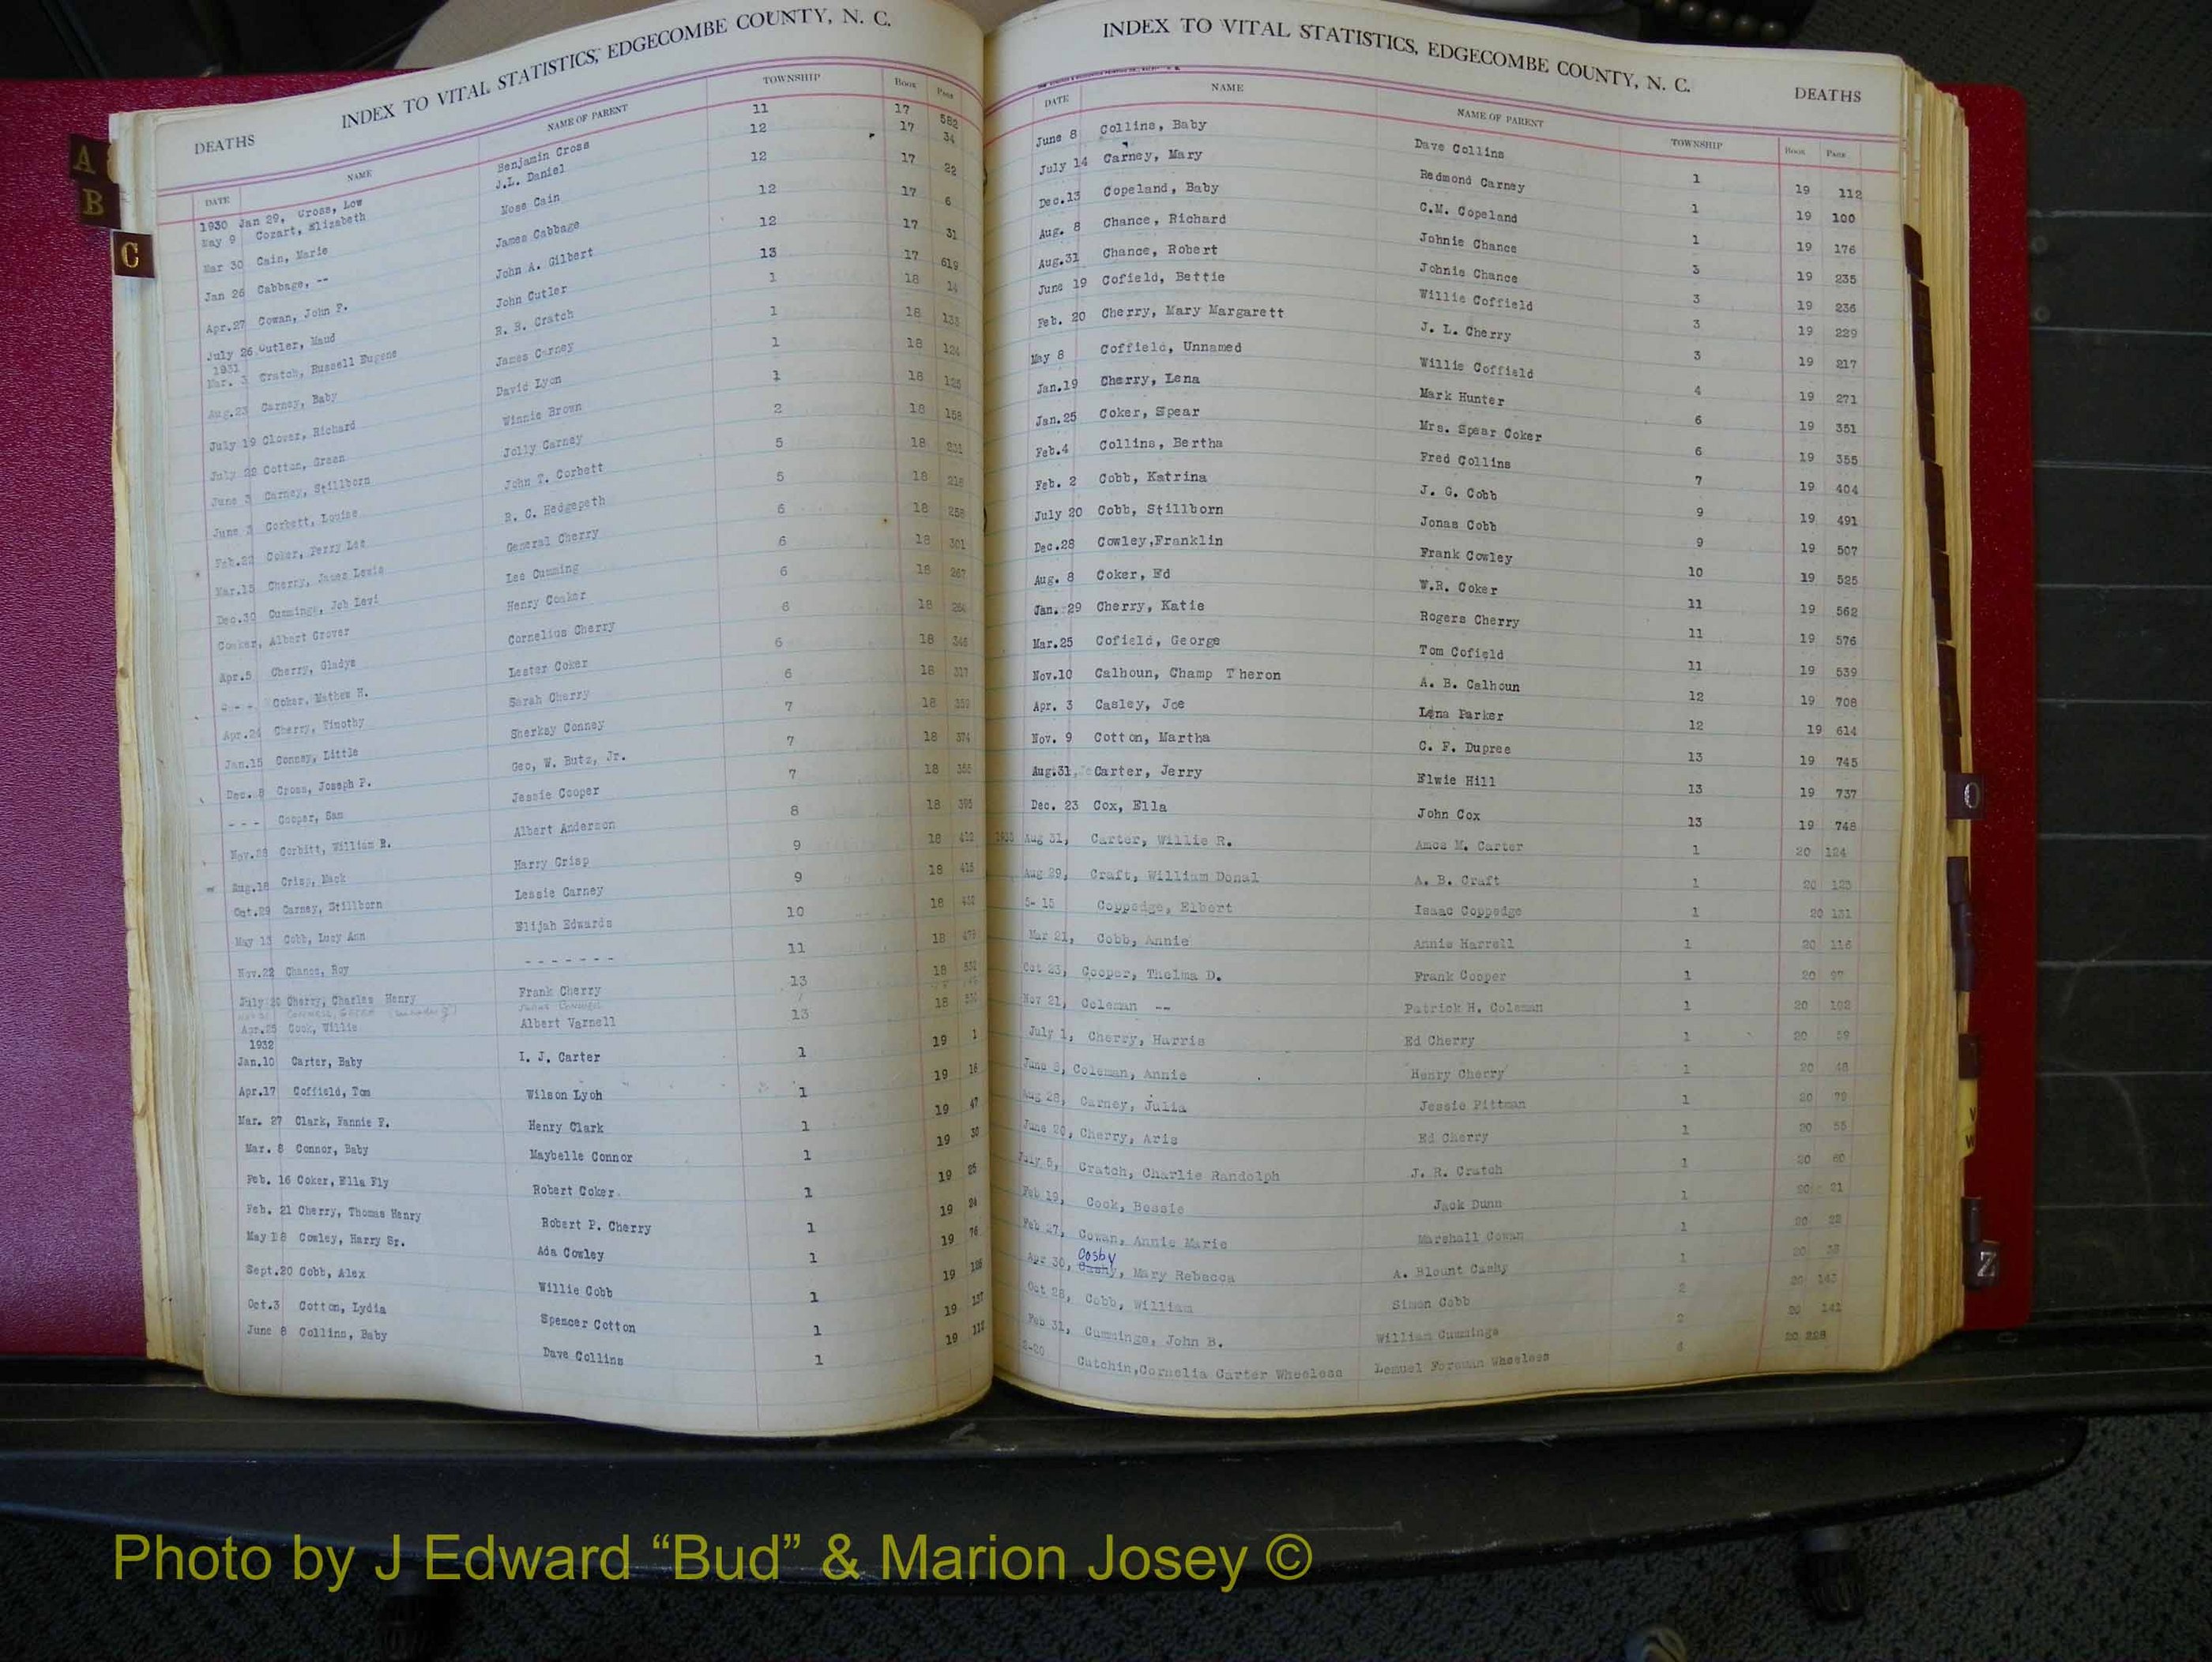 A
B
C
INDEX TO VITAL STATISTICS, EDGECOMBE COUNTY, N. C.
DEATHS
DATE NAME NAME OF PARENT TOWNSHIP Book Page
1930 Jan 29, Cross, Low Benjamin Cross 11 17 582
May 9 Cozart, Elizabeth J.L. Daniel 12 17 34
Mar 30 Cain, Marie Mose Cain 12 17 22
Jan 26 Cabbage, -- James Cabbage 12 17 6
Apr.27 Cowan, John F. John A. Gilbert 12 17 31
July 26 Cutler, Maud John Cutler 13 17 619
1931
Mar. 3 Cratch, Russell Eugene R. R. Cratch 1 18 14
Aug.23 Carney, Baby James Carney 1 18 133
July 19 Clover, Richard David Lyon 1 18 124
July 22 Cotton, Green Winnie Brown 1 18 125
June 3 Carney, Stillborn Jolly Carney 2 18 158
June 3 Corbett, Louise John T. Corbett 5 18 231
Feb.22 Coker, Perry Lee R. C. Hedgepeth 5 18 218
Mar.15 Cherry, James Lewis General Cherry 6 18 258
Dec.30 Cummings, Job Levi Lee Cumming 6 18 301
Conker, Albert Grover Henry Conker 6 18 267
Apr.5 Cherry, Gladys Cornelius Cherry 6 18
Coker, Mathew H. Lester Coker 6 18 346
Apr.24 Cherry, Timothy Sarah Cherry 6 18 317
Jan.15 Conney, Little Sherkey Conney 7 18
Dec. 8 Cross, Joseph P. Geo, W. Butz, Jr. 7 18 374
- - - Cooper, Sam Jessie Cooper 7 18
Nov.28 Corbitt, William R. Albert Anderson 8 18 395
Aug.18 Crisp, Mack Harry Crisp 9 18 422
Oct.29 Carney, Stillborn Lessie Carney 9 18 416
May 13 Cobb, Lucy Ann Elijah Edwards 10 18
Nov.22 Chance, Roy - - - - - - - 11 18 479
July 20 Cherry, Charles Henry Frank Cherry 13 18 532
Apr.25 Cook, Willis Albert Varnell 13 18
1932
Jan.10 Carter, Baby I. J. Carter 1 19 1
Apr.17 Coffield, Tom Wilson Lyon 1 19 16
Mar. 27 Clark, Fannie F. Henry Clark 1 19 47
Mar. 8 Connor, Baby Maybelle Connor 1 19 30
Feb. 16 Coker, Ella Fly Robert Coker 1 19 25
Feb. 21 Cherry, Thomas Henry Robert P. Cherry 1 19 24
May 18 Cowley, Harry Sr. Ada Cowley 1 19 76
Sept.20 Cobb, Alex Willie Cobb 1 19
Oct.3 Cotton, Lydia Spencer Cotton 1 19 137
June 8 Collins, Baby Dave Collins 1 19 112
INDEX TO VITAL STATISTICS, EDGECOMBE COUNTY, N. C.
DEATHS
DATE NAME NAME OF PARENT TOWNSHIP Book Page
June 8 Collins, Baby Dave Collins 1 19 112
July 14 Carney, Mary Redmond Carney 1 19 100
Dec.13 Copeland, Baby C.M. Copeland 1 19 176
Aug. 8 Chance, Richard Johnie Chance 3 19 235
Aug.31 Chance, Robert Johnie Chance 3 19 236
June 19 Cofield, Bettie Willie Coffield 3 19 229
Feb. 20 Cherry, Mary Margarett J. L. Cherry 3 19 217
May 8 Coffield, Unnamed Willie Coffield 4 19 271
Jan.19 Cherry, Lena Mark Hunter 6 19 351
Jan.25 Coker, Spear Mrs. Spear Coker 6 19 355
Feb.4 Collins, Bertha Fred Collins 7 19 404
Feb. 2 Cobb, Katrina J. G. Cobb 9 19 491
July 20 Cobb, Stillborn Jonas Cobb 9 19 507
Dec.28 Cowley,Franklin Frank Cowley 10 19 525
Aug. 8 Coker, Ed W.R. Coker 11 19 562
Jan. 29 Cherry, Katie Rogers Cherry 11 19 576
Mar.25 Cofield, George Tom Cofield 11 19 539
Nov.10 Calhoun, Champ Theron A. B. Calhoun 12 19 708
Apr. 3 Casley, Joe Lena Parker 12 19 614
Nov. 9 Cotton, Martha C. F. Dupree 13 19 745
Aug.31, Carter, Jerry Elwie Hill 13 19 737
Dec. 23 Cox, Ella John Cox 13 19 748
Aug 31, Carter, Willie R. Amos M. Carter 1 20 124
Aug 29, Craft, William Donal A. B. Craft 1 20 123
5- 15 Coppedge, Elbert Isaac Coppedge 1 20 131
Mar 21, Cobb, Annie Annie Harrell 1 20 116
Oct 23, Cooper, Thelma D. Frank Cooper 1 20 97
Nov 21, Coleman -- Patrick H. Coleman 1 20 102
July 1, Cherry, Harris Ed Cherry 1 20 59
June 8, Coleman, Annie Henry Cherry 1 20 48
Aug 28, Carney, Julia Jessie Pittman 1 20 79
June 20, Cherry, Aris Ed Cherry 1 20 55
July 5, Cratch, Charlie Randolph J. R. Cratch 1 20 60
Feb 19, Cook, Bessie Jack Dunn 1 20 21
Feb 27, Cowan, Annie Marie Marshall Cowan 1 20 22
Cosby
Apr 30, Cashy, Mary Rebecca A. Blount Cashy 1 20 38
Oct 28, Cobb, William Simon Cobb 2 20 143
Feb 31, Cummings, John B. William Cummings 2 20 141
2-20 Cutchin,Cornelia Carter Wheeless Lemuel Foreman Wheeless 6 20 228
O
V
W
Z
Photo by J Edward “Bud” & Marion Josey ©